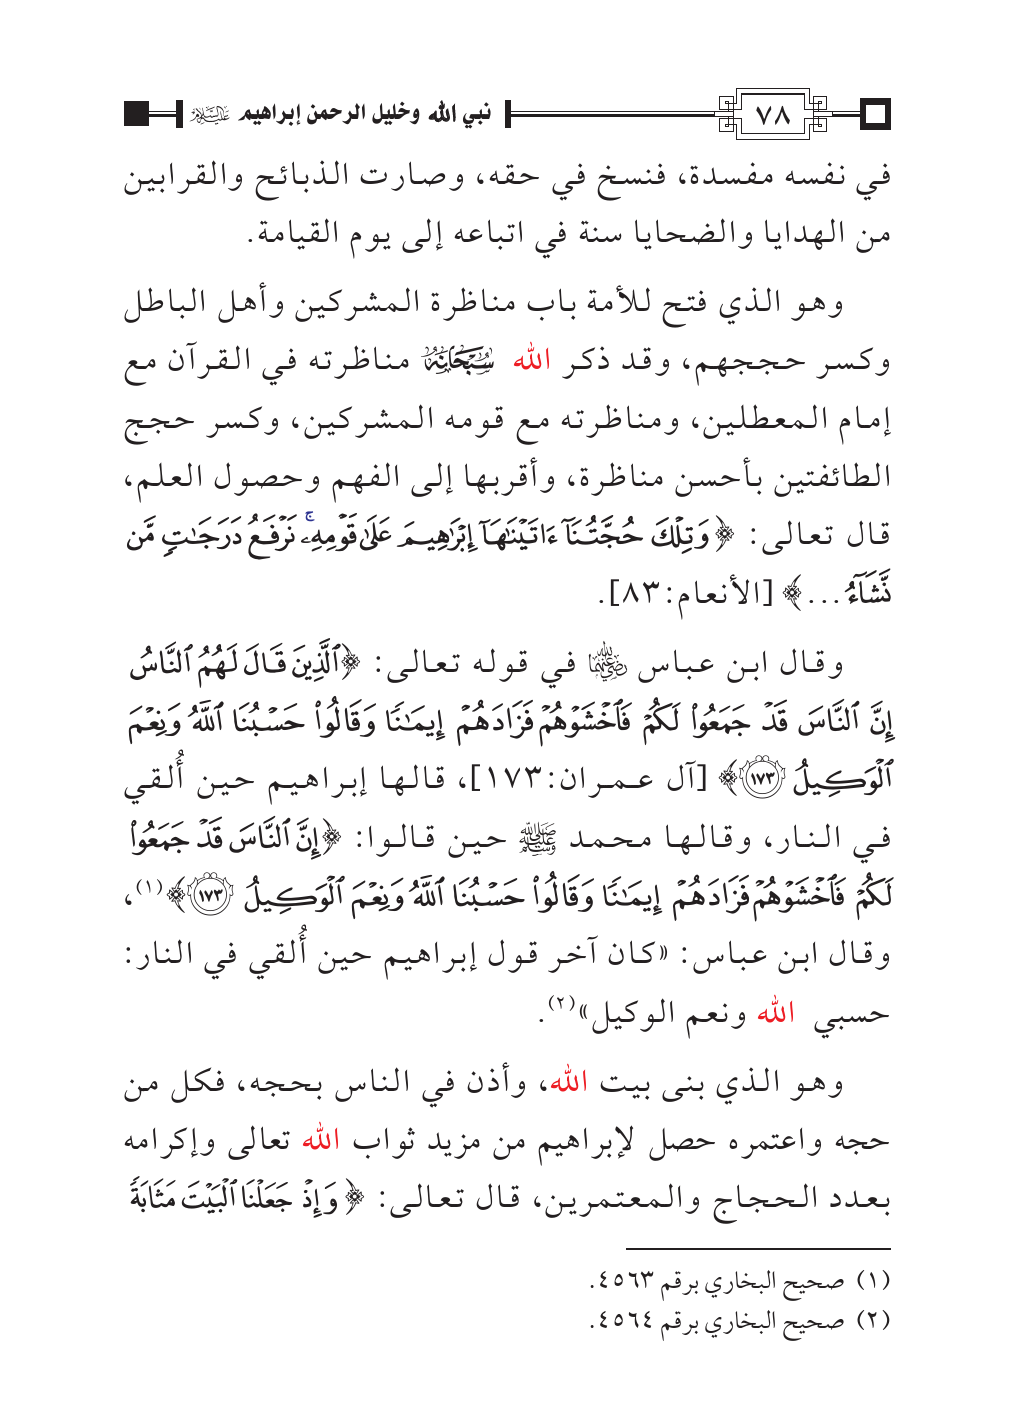 ٧٨ نبي الله وخليل الرحمن إبراهيم عليه السلام
في نفسه مفسدة، فنسخ في حقه، وصارت الذبائح والقرابين
من الهدايا والضحايا سنة في اتباعه إلى يوم القيامة.
وهو الذي فتح للأمة باب مناظرة المشركين وأهل الباطل
وكسر حججهم، وقد ذكر الله سبحانه مناظرته في القرآن مع
إمام المعطلين، ومناظرته مع قومه المشركين، وكسر حجج
الطائفتين بأحسن مناظرة، وأقربها إلى الفهم وحصول العلم،
قال تعالى: ﴿وَتِلْكَ حُجَّتُنَآ ءَاتَيْنَٰهَآ إِبْرَٰهِيمَ عَلَىٰ قَوْمِهِۦۚ نَرْفَعُ دَرَجَٰتٍ مَّن
نَّشَآءُ...﴾ [الأنعام:٨٣].
وقال ابن عباس رضي الله عنهما في قوله تعالى: ﴿ٱلَّذِينَ قَالَ لَهُمُ ٱلنَّاسُ
إِنَّ ٱلنَّاسَ قَدْ جَمَعُوا۟ لَكُمْ فَٱخْشَوْهُمْ فَزَادَهُمْ إِيمَٰنًا وَقَالُوا۟ حَسْبُنَا ٱللَّهُ وَنِعْمَ
ٱلْوَكِيلُ ١٧٣﴾ [آل عمران:١٧٣]، قالها إبراهيم حين أُلقي
في النار، وقالها محمد ﷺ حين قالوا: ﴿إِنَّ ٱلنَّاسَ قَدْ جَمَعُوا۟
لَكُمْ فَٱخْشَوْهُمْ فَزَادَهُمْ إِيمَٰنًا وَقَالُوا۟ حَسْبُنَا ٱللَّهُ وَنِعْمَ ٱلْوَكِيلُ ١٧٣﴾(١)،
وقال ابن عباس: «كان آخر قول إبراهيم حين أُلقي في النار:
حسبي الله ونعم الوكيل»(٢).
وهو الذي بنى بيت الله، وأذن في الناس بحجه، فكل من
حجه واعتمره حصل لإبراهيم من مزيد ثواب الله تعالى وإكرامه
بعدد الحجاج والمعتمرين، قال تعالى: ﴿وَإِذْ جَعَلْنَا ٱلْبَيْتَ مَثَابَةً
(١) صحيح البخاري برقم ٤٥٦٣.
(٢) صحيح البخاري برقم ٤٥٦٤.